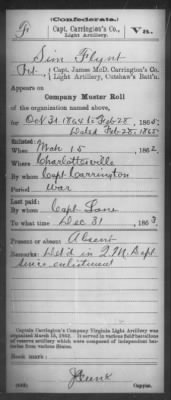 (Confederate.)
F Capt. Carrington's Co., Va.
Light Artillery.
Sim Flynt
Pvt., Capt. James McD. Carrington's Co.
Light Artillery, Cutshaw's Batt'n.
Appears on
Company Muster Roll
of the organization named above,
for Oct 31. 1864 to Feb 28, 1865.
Dated Feb. 28. 1865
Enlisted:
When Mch 15, 1862
Where Charlottesville
By whom Capt Carrington
Period war
Last paid:
By whom Capt Lane
To what time Dec 31, 1863.
Present or absent Absent
Remarks: Det'd in Q.M. Dept.
since enlistment
Captain Carrington's Company Virginia Light Artillery was
organized March 13, 1862. It served in various field battalions
of reserve artillery which were composed of independent batteries
from various States.
Book mark:
Copyist.